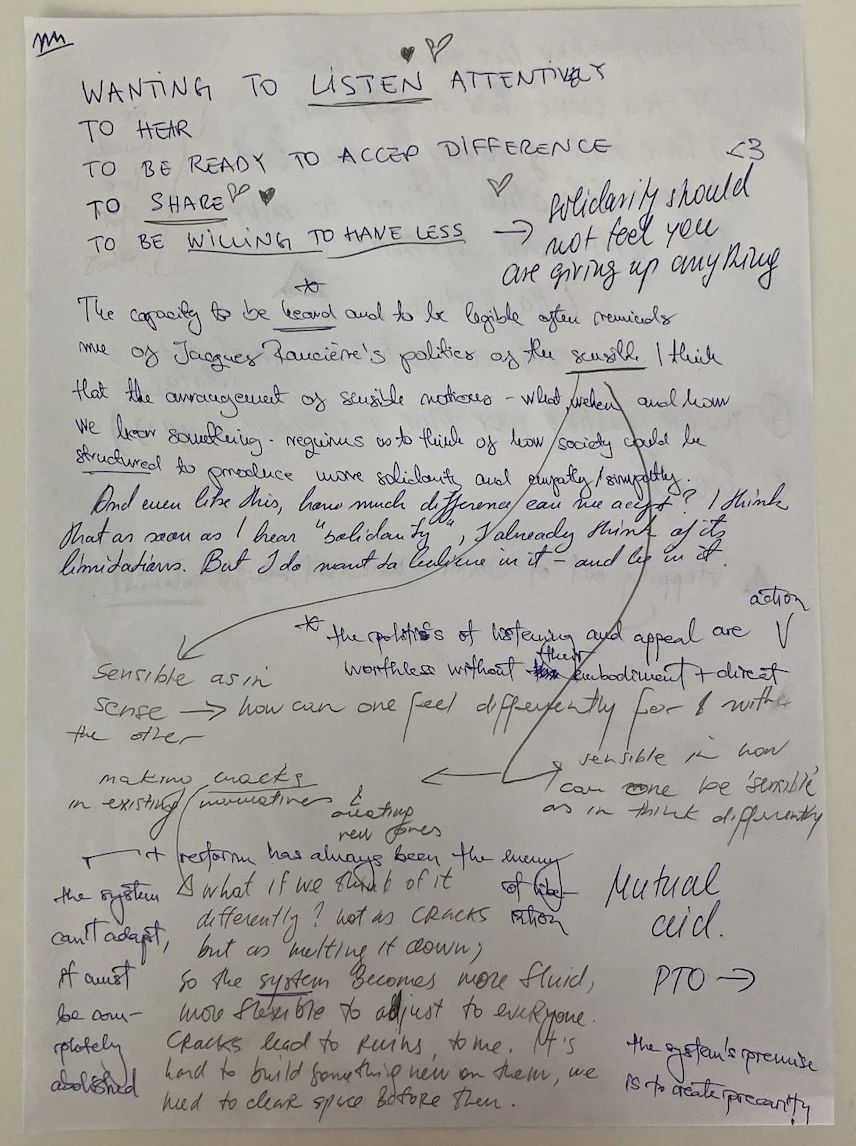 WANTING TO LISTEN ATTENTIVELY
TO HEAR
TO BE READY TO ACCEP DIFFERENCE
TO SHARE
TO BE WILLING TO HAVE LESS →
<3
solidarity should
not feel you
are giving up anything
The capacity to be heard* and to be legible often reminds
me of Jacques Rancière's politics of the sensible. I think
that the arrangement of sensible notions - what, when and how
we hear something - requires us to think of how society could be
structured to produce more solidarity and empathy/simpathy.
And even like this, how much difference can we accept? I think
that as soon as I hear "solidarity", I already think of its
limitations. But I do want to believe in it - and be in it.
* the politics of listening and appeal are
worthless without their embodiment + direct
action
sensible as in
sense → how can one feel differently for & with
the other
sensible in how
can one be 'sensible'
as in think differently
making cracks
in existing narratives &
creating
new ones
+ reform has always been the enemy
of libe-
ration
the system
can't adapt,
it must
be com-
pletely
abolished
what if we think of it
differently? not as CRACKS
but as melting it down,
so the system becomes more fluid,
more flexible to adjust to everyone.
CRACKS lead to RUINS, to me. It's
hard to build something new on them, we
need to clear space before then.
Mutual
aid.
PTO →
the system's premise
is to create precarity